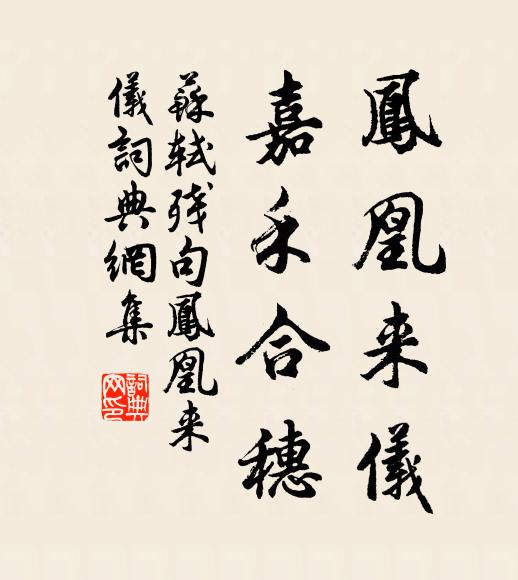 鳳凰来儀
嘉禾合穗
蘇軾残句鳳凰来
儀詞典網集
詞典网印